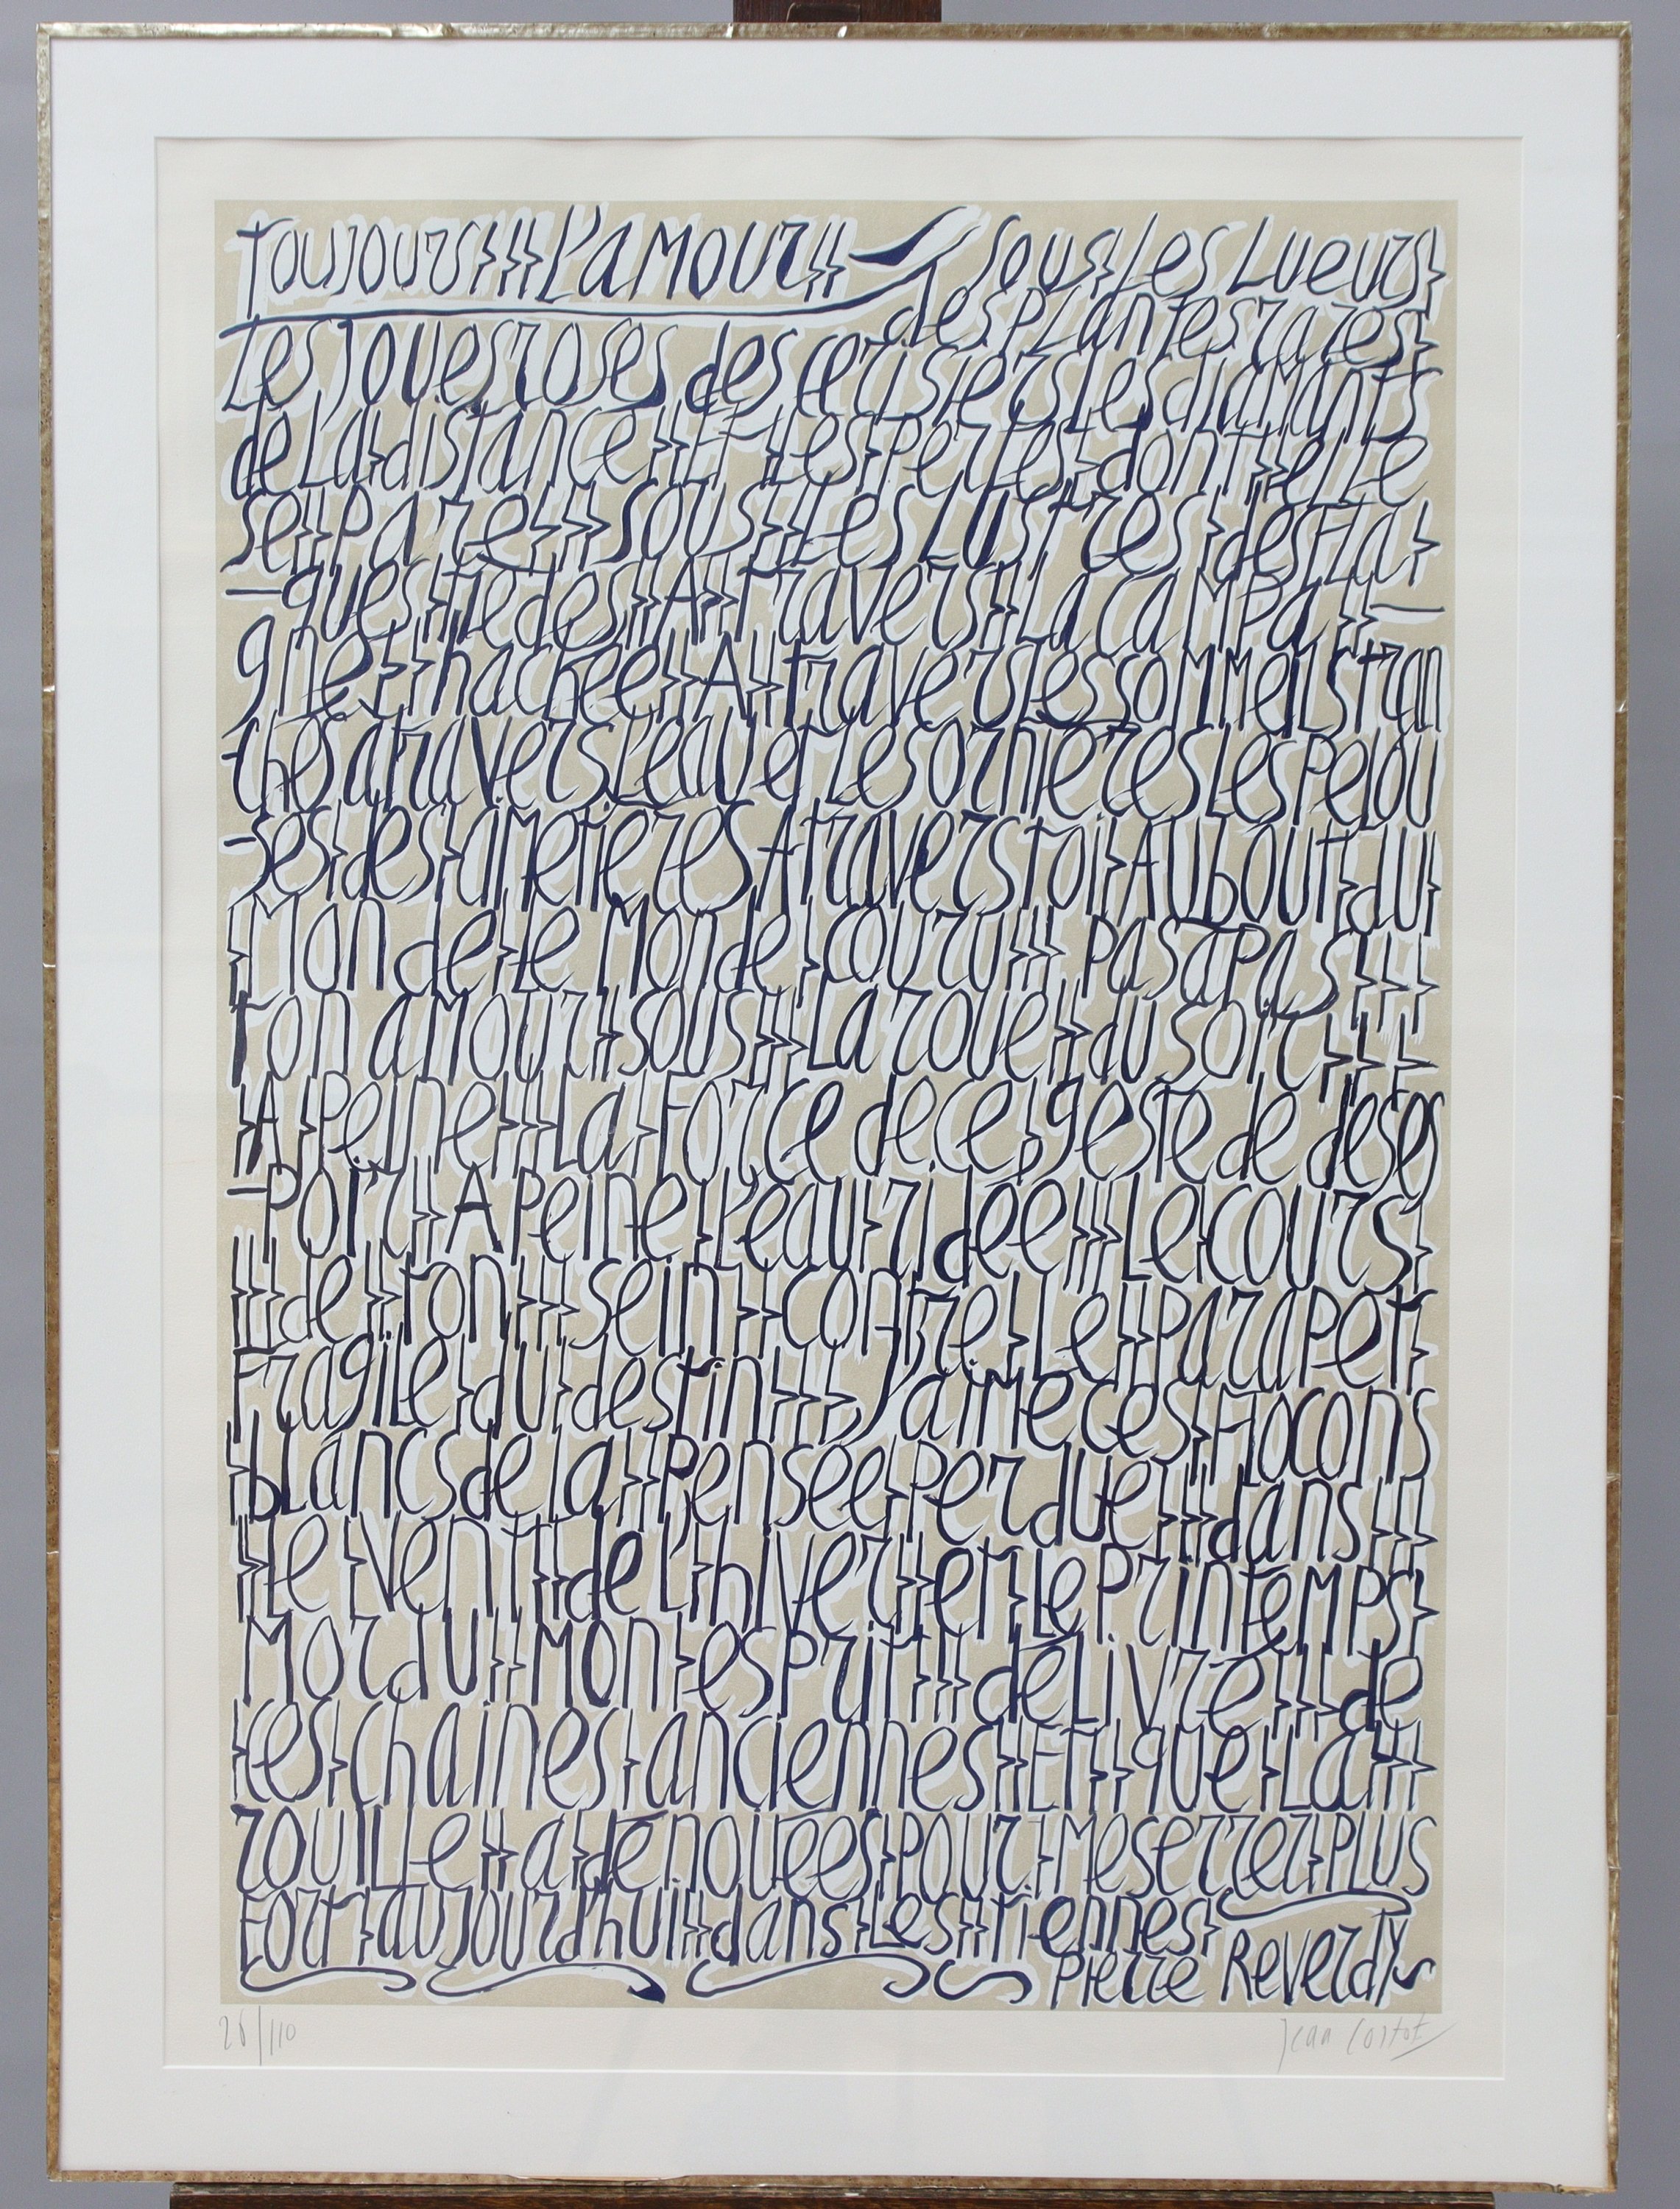 Toujours l'amour Sous les lueurs
des plantes rares
Les joues roses des cerisiers Les diamants
de la distance Et les perles dont elle
se pare Sous les lustres des fla
-ques tiedes A travers la campa-
gne hachee A travers les sommeils tran
chés a travers l'eau et les ornieres Les pelou
-ses des cimetieres A travers toi Au bout du
Monde Le monde couru pas à pas
Ton amour sous la roue du soir
A peine la force de ce geste de deses
-poir A peine l'eau ridee Le cours
de ton sein contre le parapet
Fragile du destin J'aime ces flocons
blancs de la pensee perdue dans
le vent de l'hiver et le printemps
Mordu Mon esprit delivré de
ces chaines anciennes Et que la
rouille a dénouées pour me serrer plus
Fort aujourd'hui dans les tiennes
Pierre Reverdy
26/110
Jean Cortot